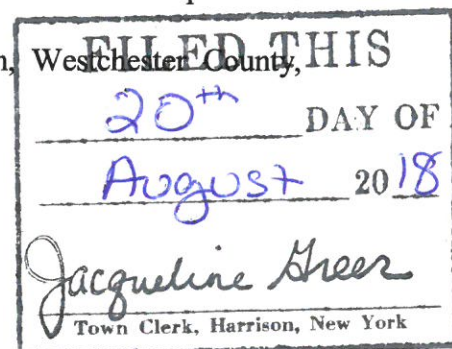 n, Westchester County,
FILED THIS
20th DAY OF
August 2018
Jacqueline Greer
Town Clerk, Harrison, New York